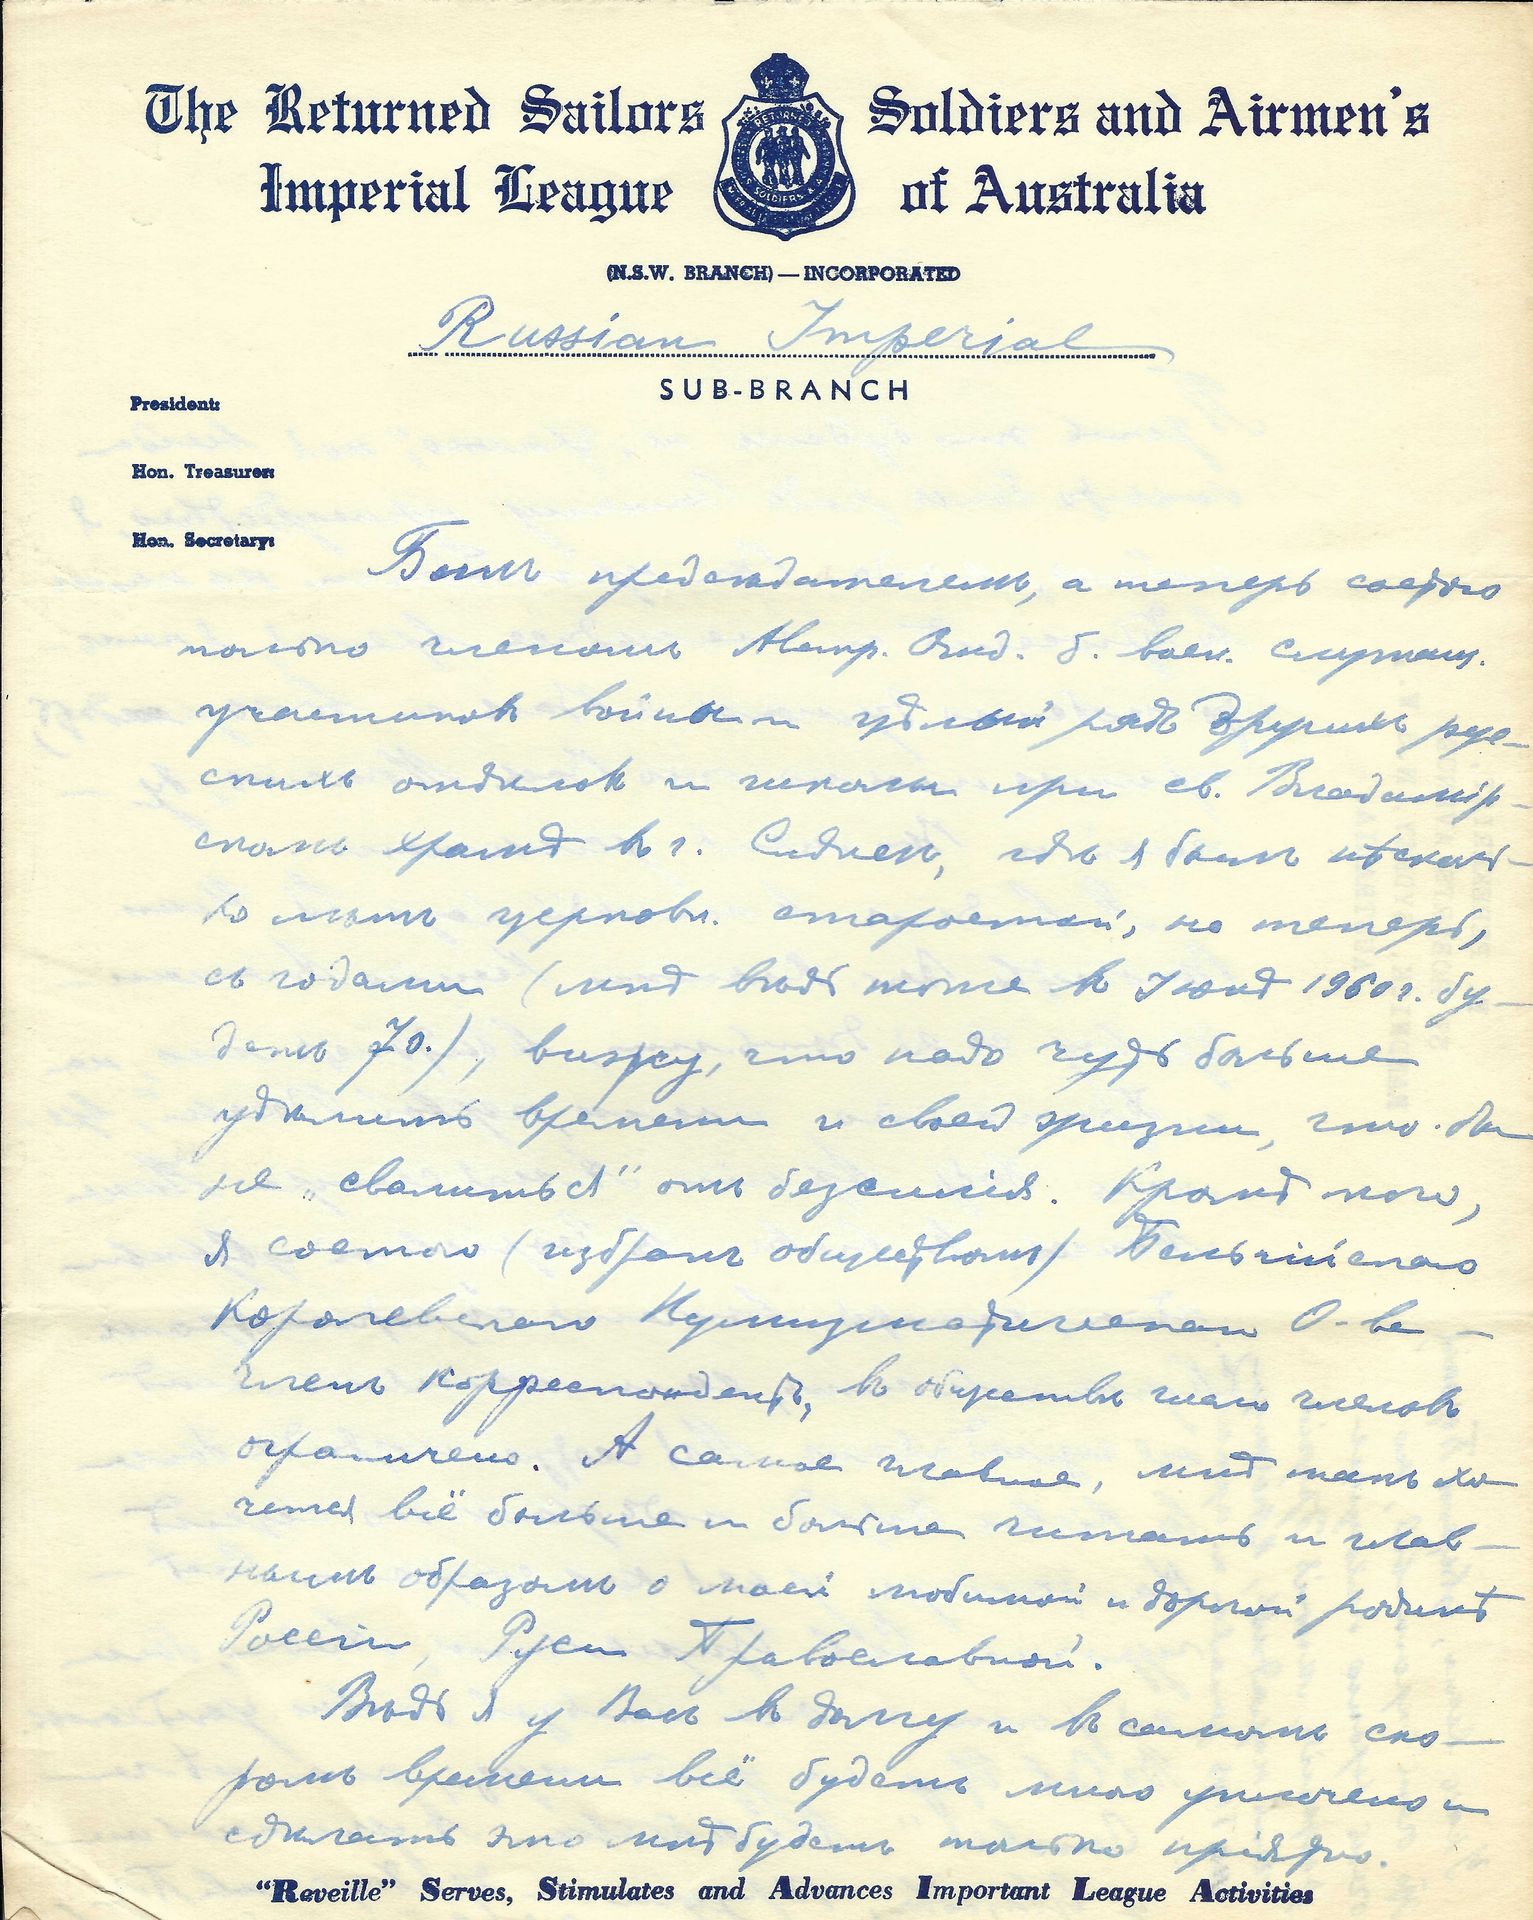 The Returned Sailors Soldiers and Airmen's
Imperial League of Australia
(N.S.W. BRANCH) — INCORPORATED
Russian Imperial
SUB-BRANCH
President:
Hon. Treasurer:
Hon. Secretary:
Былъ предсѣдателемъ, а теперь состою
только членомъ Австр. Отд. б. воен. служащ.
участниковъ войны и цѣлый рядъ другихъ рус-
скихъ отдѣловъ и школы при св. Владимір-
скомъ храмѣ въ г. Сиднеѣ, гдѣ я былъ нѣсколь-
ко лѣтъ церковн. старостой, но теперь,
съ годами (мнѣ вѣдь тоже въ Іюнѣ 1960 г. бу-
детъ 70.), вижу, что надо чуть больше
удѣлить времени и своей жизни, что-бы
не „свалиться" отъ безсилія. Кромѣ того,
я состою (избранъ обществомъ) Бельгійскаго
Королевскаго Нумизматическаго О-ва —
членъ корреспондентъ, въ обществѣ число членовъ
ограничено. А самое главное, мнѣ такъ хо
чется всё больше и больше читать и глав-
нымъ образомъ о моей любимой и дорогой родинѣ
Россіи, Руси Православной.
Вѣдь я у Васъ въ долгу и въ самомъ ско-
ромъ времени всё будетъ мною уплочено и
сдѣлать это мнѣ будетъ только пріятно.
"Reveille" Serves, Stimulates and Advances Important League Activities